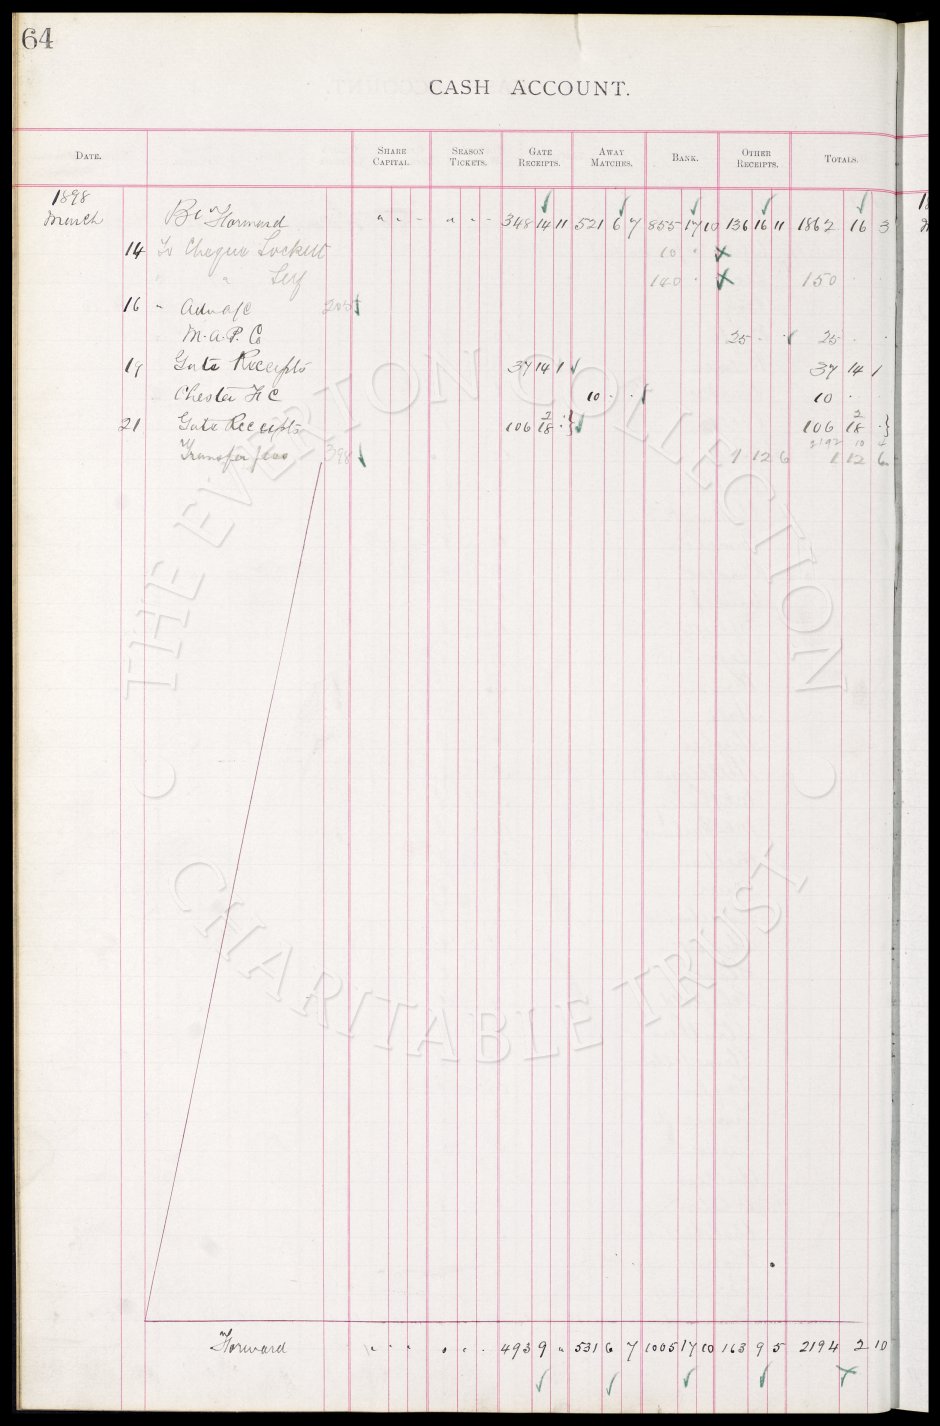 64
CASH ACCOUNT.
DATE. SHARE CAPITAL. SEASON TICKETS. GATE RECEIPTS. AWAY MATCHES. BANK. OTHER RECEIPTS. TOTALS.
1898
March Bt Forward " " " " " " 348 14 11 521 6 7 855 17 10 136 16 11 1862 16 3
14 To Cheque Lockett 10 "
" " Self 140 " 150 " "
16 " Adv a/c
M.A.P. Co 25 " " 25 " "
19 Gate Receipts 37 14 1 37 14 1
Chester F C 10 " " 10 " "
21 Gate Receipts 106 2 18 106 2 18
2192 10 4
Transfer fees 398 1 12 6 1 12 6
Forward " " " " " " 493 9 " 531 6 7 1005 17 10 163 9 5 2194 2 10
THE EVERTON COLLECTION
CHARITABLE TRUST